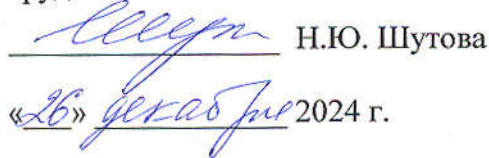 Н.Ю. Шутова
«26» декабря 2024 г.